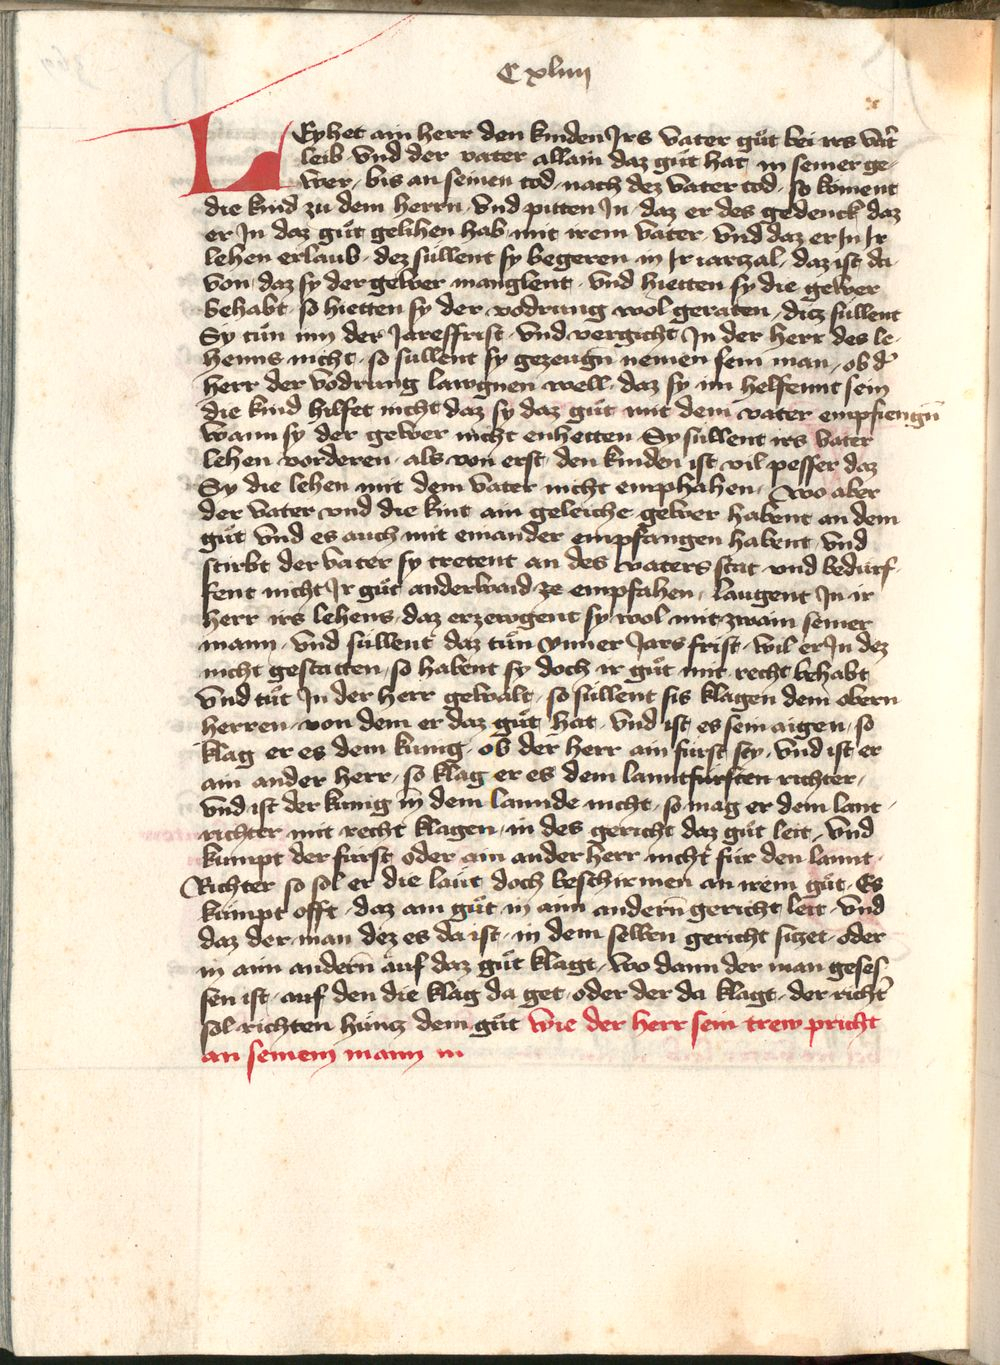 C xliiij
LEyhet ain herr den kinden Jrs vater gůt bei irs vat̉
leib · vnd der vater allain daz gůt hat in seiner ge-
wer · bis an seinen tod · nach dez vater tod · so koment
die kind zu dem herrn · vnd pitten Jn · daz er des gedenck daz
er Jn daz gůt gelihen hab · mit irem vater · vnd daz er Jn Jr
lehen erlaub · dez süllent sy begeren in Jr iarczal · daz ist da
von daz sy der gewer manglent · vnd hietten sy die gewer
behabt · so hietten sy der vodrung wol geraten · ditz süllent
Sy tůn inn der Jareffrist · vnd vergicht Jn der herr des le-
henns nicht · so süllent sy gezeugn nemen sein man · ob d̉
herr der vodrung lawgnen well · daz sy im helfennt sein
die kind hilfet nicht daz sy daz gůt mit dem vater empfiengn̄
wann sy der gewer nicht enhetten Sy süllent irs vater
lehen vorderen · als von erst · den kinden ist vil pesser daz
Sy die lehen mit dem vater nicht emphahen · wo aber
der vater vnd die kint ain geleiche gewer habent an dem
gůt vnd es auch mit einander empfangen habent · vnd
stirbt der vater sy tretent an des vaters stat vnd bedürf-
fent nicht Jr gůt anderwaid ze empfahen · laugent Jn ir
herr irs lehens · daz erzewgent sy wol mit zwain seiner
mann · vnd süllent daz tůn ynner Jars frist · wil er Jn dez
nicht gestatten · so habent sy doch ir gůt mit recht behabt
vnd tůt Jn der herr gewalt · so süllent sis klagen dem obern
herren · von dem er daz gůt hat · vnd ist es sein aigen · so
klag er es dem kunig · ob der herr ain fürst sey · vnd ist er
ain ander herr · so klag er es dem lanntfürsten richter ·
vnd ist der kunig in dem lannde nicht · so mag er dem lant-
richter mit recht klagen · in des gericht daz gůt leit · vnd
kumpt der fürst oder ain ander herr nicht für den lannt-
Richter so sol er die laüt doch beschirmen an irem gůt · Es
kümpt offt · daz ain gůt in ainn andern̄ gericht leit · vnd
daz der man dez es da ist · in dem selben gericht siczet · oder
in ainn andern̄ auf daz gůt klagt · wo dann der man geses-
sen ist · auf den die klag da get · oder der da klagt · der richt̉
sol richten hüncz dem gůt wie der herr sein trew pricht
an seinem mann